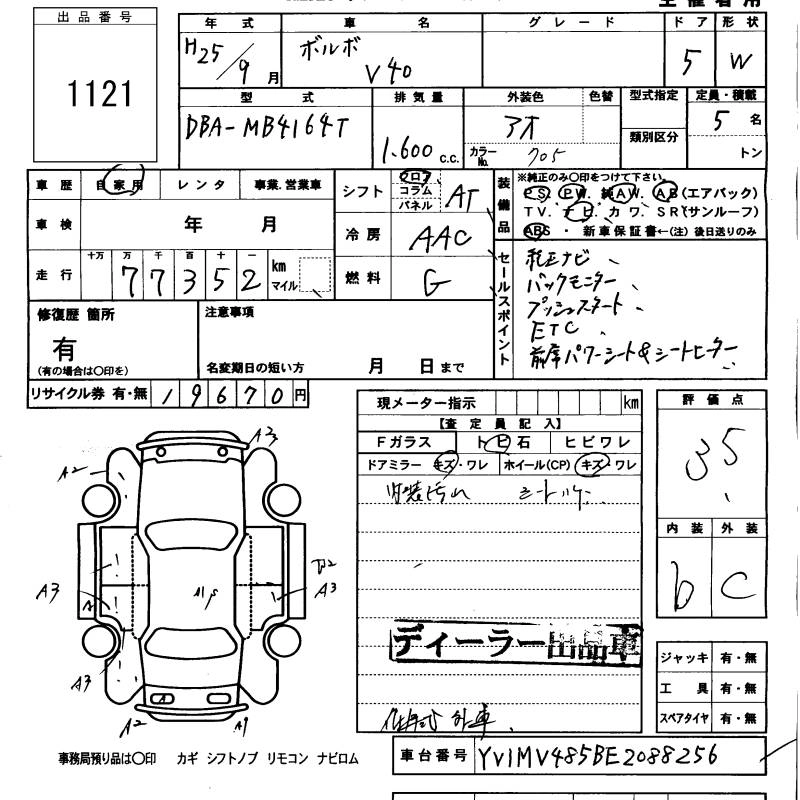 出品番号
1121
年式 車名 グレード ドア 形状
H25/9月 ボルボ V40 5 W
型式 排気量 外装色 色替 型式指定 定員・積載
DBA-MB4164T 1.600 c.c. アオ 類別区分 5名
カラーNo. 705 トン
車歴 自家用 レンタ 事業.営業車
シフト フロア コラム パネル AT
車検 年 月
冷房 AAC
走行 十万 万 千 百 十 一
77352 km マイル
燃料 G
装備品
※純正のみ〇印をつけて下さい。
PS. PW. 純AW. AB(エアバック)
TV. ナビ. カワ. SR(サンルーフ)
ABS ・ 新車保証書←(注) 後日送りのみ
セールスポイント
純正ナビ
バックモニター
プッシュスタート
ETC
前席パワーシート&シートヒーター
修復歴 箇所
有
(有の場合は〇印を)
注意事項
名変期日の短い方 月 日まで
リサイクル券 有・無 19670円
現メーター指示 km
【査定員記入】
Fガラス トビ石 ヒビワレ
ドアミラー キズ・ワレ ホイール(CP) キズ・ワレ
内装汚れ シート
評価点
35
内装 外装
b C
A3
A2
A3
A
B2
A3
A3
A
A2
A1
ディーラー出品車
ジャッキ 有・無
工具 有・無
スペアタイヤ 有・無
事務局預り品は〇印 カギ シフトノブ リモコン ナビロム
車台番号 YV1MV485BE2088256